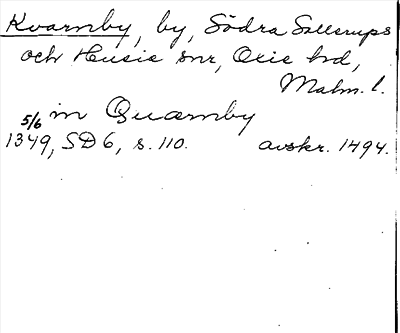 Kvarnby, by, Södra Sallerups
och Husie snr, Oxie hd,
Malm. l.
in Quarnby
5/6
1349, SD 6, s. 110. avskr. 1494.